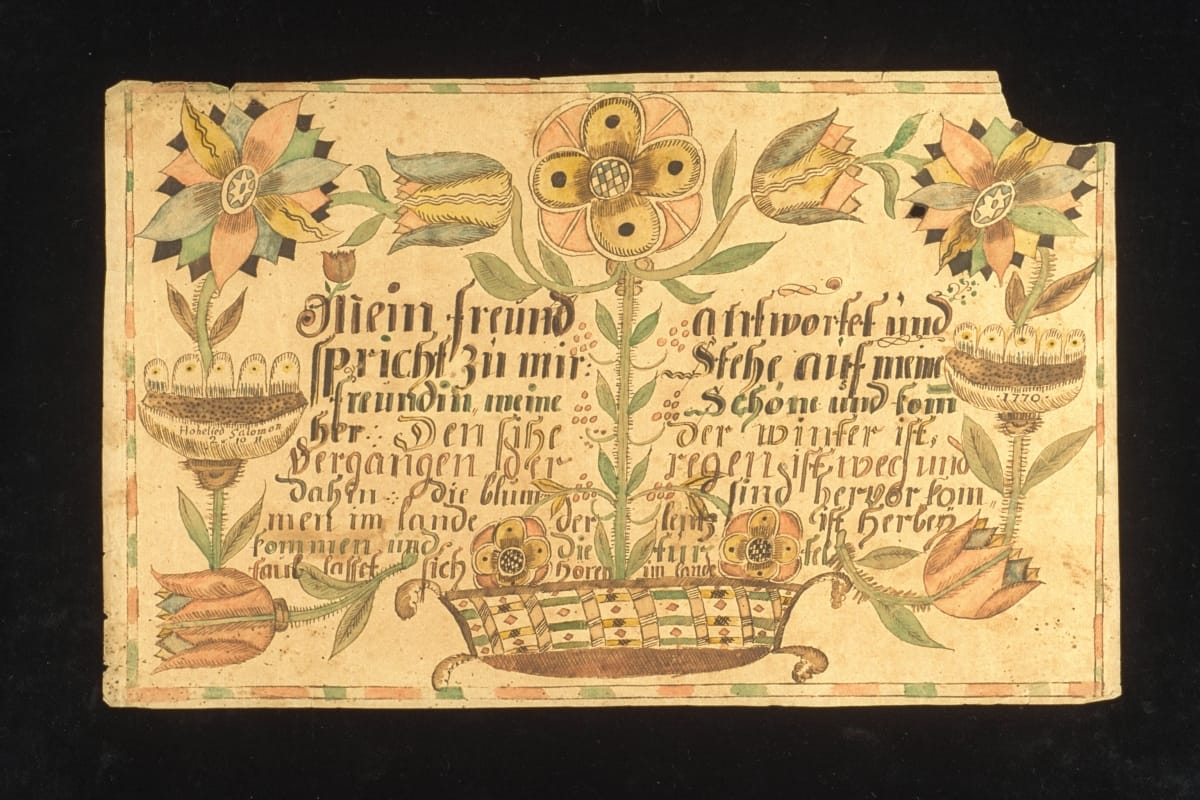 Mein freund antwortet und
spricht zu mir: Stehe auf meine
freundin, meine Schöne und kom̄
her: Den sihe der winter ist,
Vergangen der regen ist weg und
dahen: die blum sind hervor kom=
men im lande der lentz ist Herbeÿ
kommen und sich die turtel
taub lasset sich hören im lande
Hohelied Salomon
2. 10. 11
1770